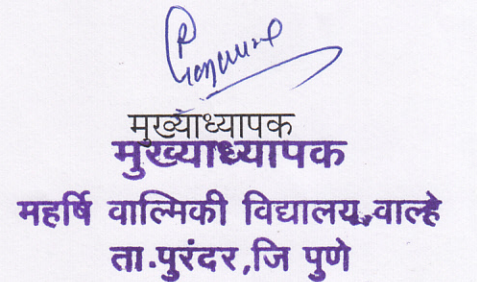 मुख्याध्यापक
मुख्याध्यापक
महर्षि वाल्मिकी विद्यालय,वाल्हे
ता.पुरंदर,जि पुणे